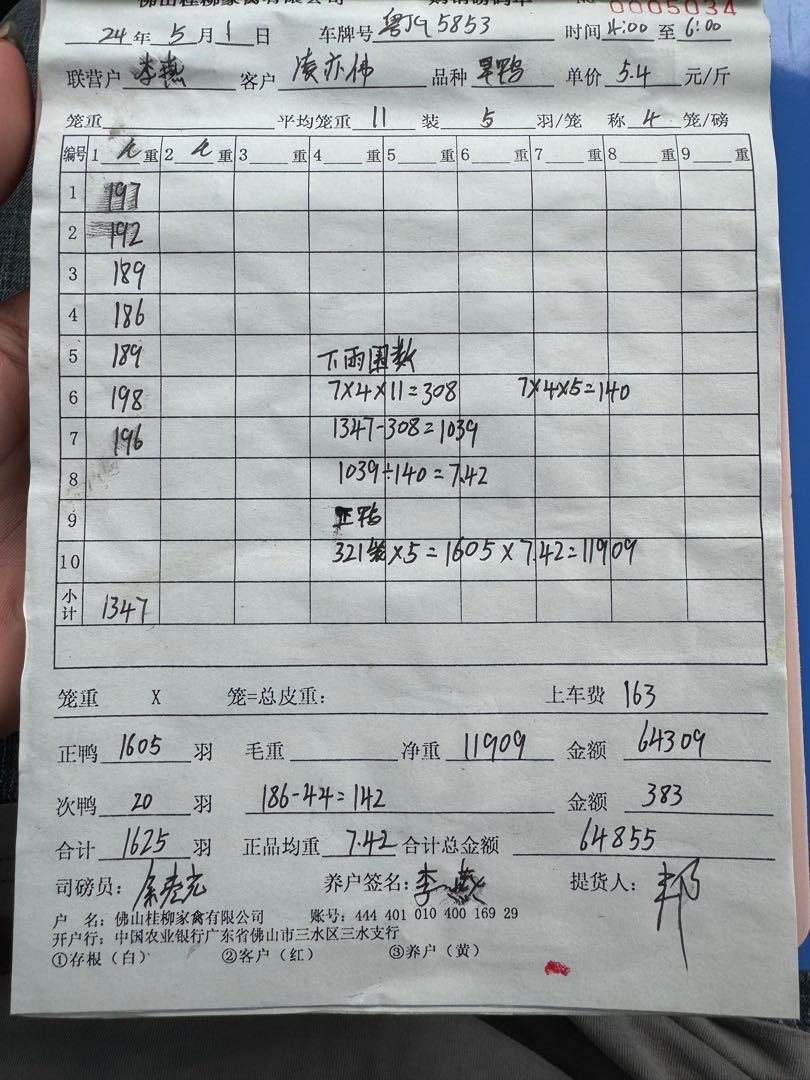 佛山桂柳家禽有限公司 购销磅码单 № 0005034
24年5月1日 车牌号 粤J 5853 时间 4:00 至 6:00
联营户 李燕 客户 凌亦伟 品种 旱鸭 单价 5.4 元/斤
笼重 平均笼重 11 装 5 羽/笼 称 4 笼/磅
编号 1 毛 重 2 毛 重 3 重 4 重 5 重 6 重 7 重 8 重 9 重
1 197
2 192
3 189
4 186
5 189 下雨围数
6 198 7×4×11=308 7×4×5=140
7 196 1347-308=1039
8 1039÷140=7.42
9 正鸭
10 321笼×5=1605×7.42=11909
小计 1347
笼重 X 笼=总皮重: 上车费 163
正鸭 1605 羽 毛重 净重 11909 金额 64309
次鸭 20 羽 186-44=142 金额 383
合计 1625 羽 正品均重 7.42 合计总金额 64855
司磅员: 养户签名: 李燕 提货人: 邦
户 名: 佛山桂柳家禽有限公司 账号: 444 401 010 400 169 29
开户行: 中国农业银行广东省佛山市三水区三水支行
①存根(白) ②客户(红) ③养户(黄)